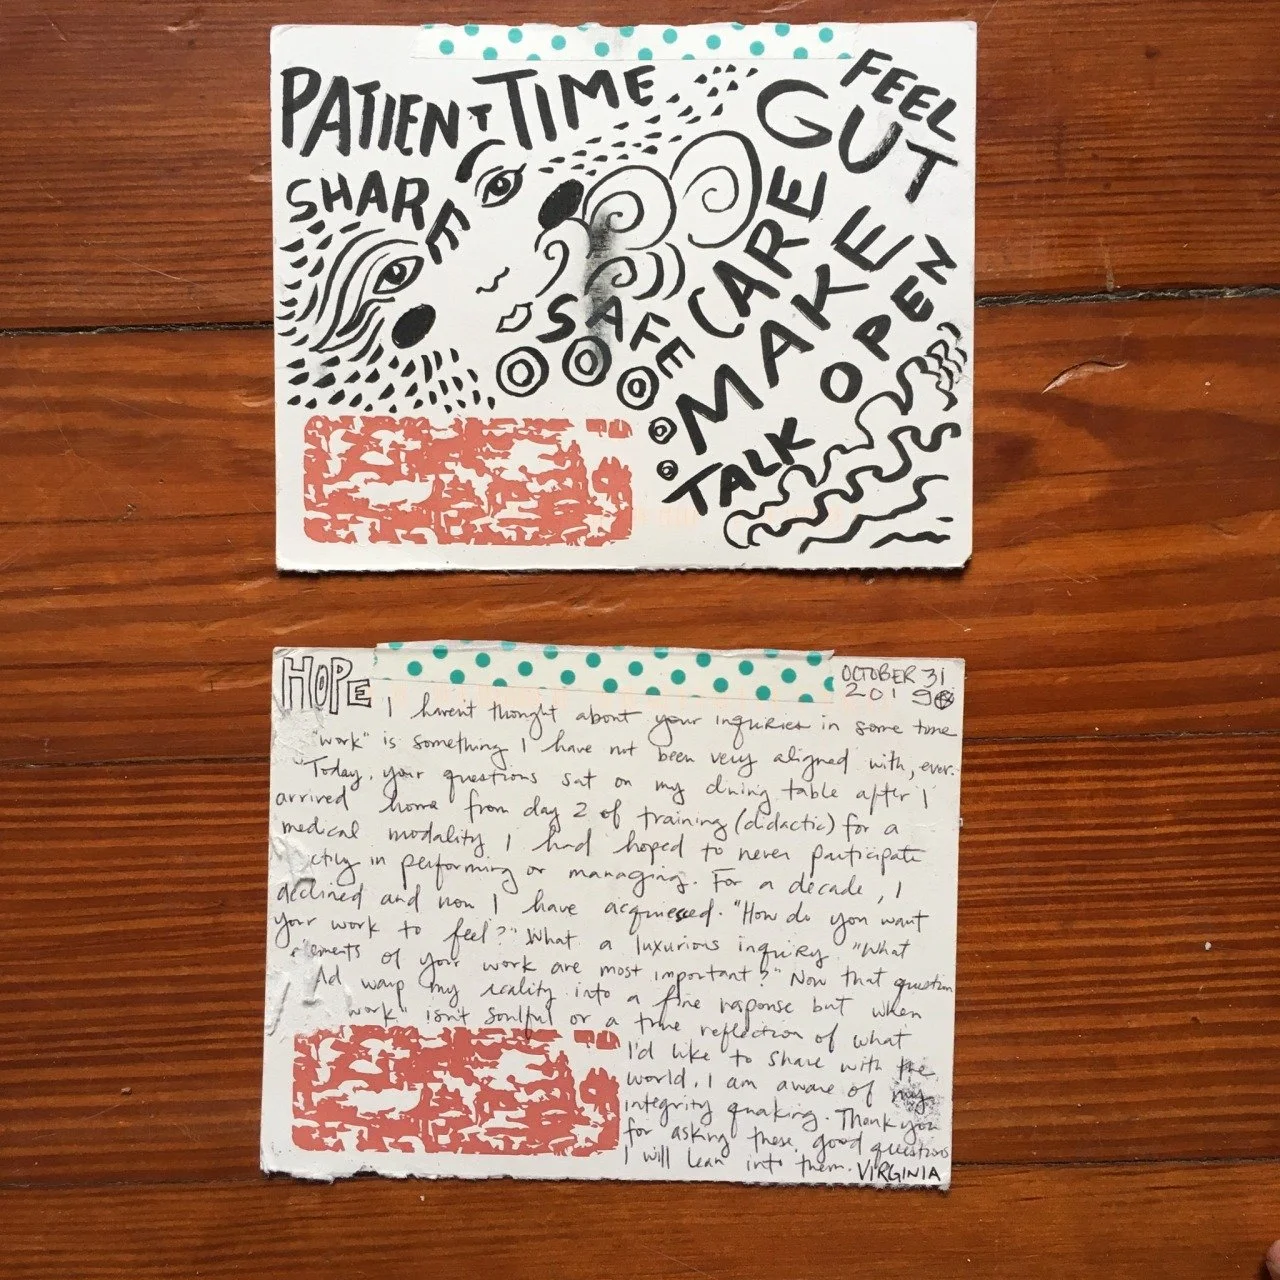 PATIENT TIME
SHARE
SAFE
CARE
FEEL
GUT
MAKE
OPEN
TALK
HOPE
OCTOBER 31
2019
I haven't thought about your inquiries in some time
"work" is something I have not been very aligned with, ever.
Today, your questions sat on my dining table after I
arrived home from day 2 of training (didactic) for a
medical modality I had hoped to never participate
in performing or managing. For a decade, I
declined and now I have acquiesced. "How do you want
your work to feel?" What a luxurious inquiry. "What
elements of your work are most important?" Now that question
warp my reality into a fine response but when
work" isn't soulful or a true reflection of what
I'd like to share with the
world, I am aware of my
integrity quaking. Thank you
for asking these good questions
I will lean into them. VIRGINIA